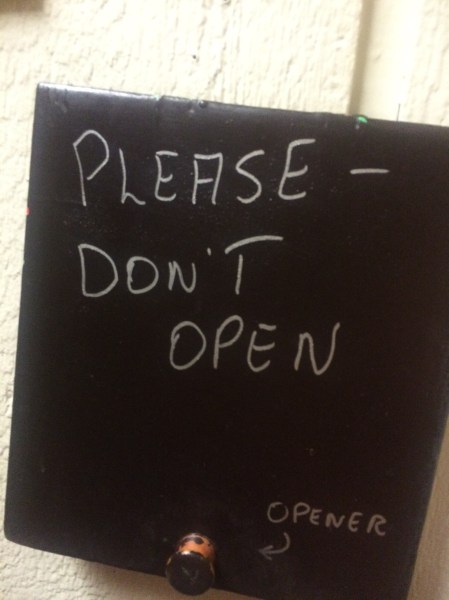 PLEASE -
DON'T
OPEN
OPENER